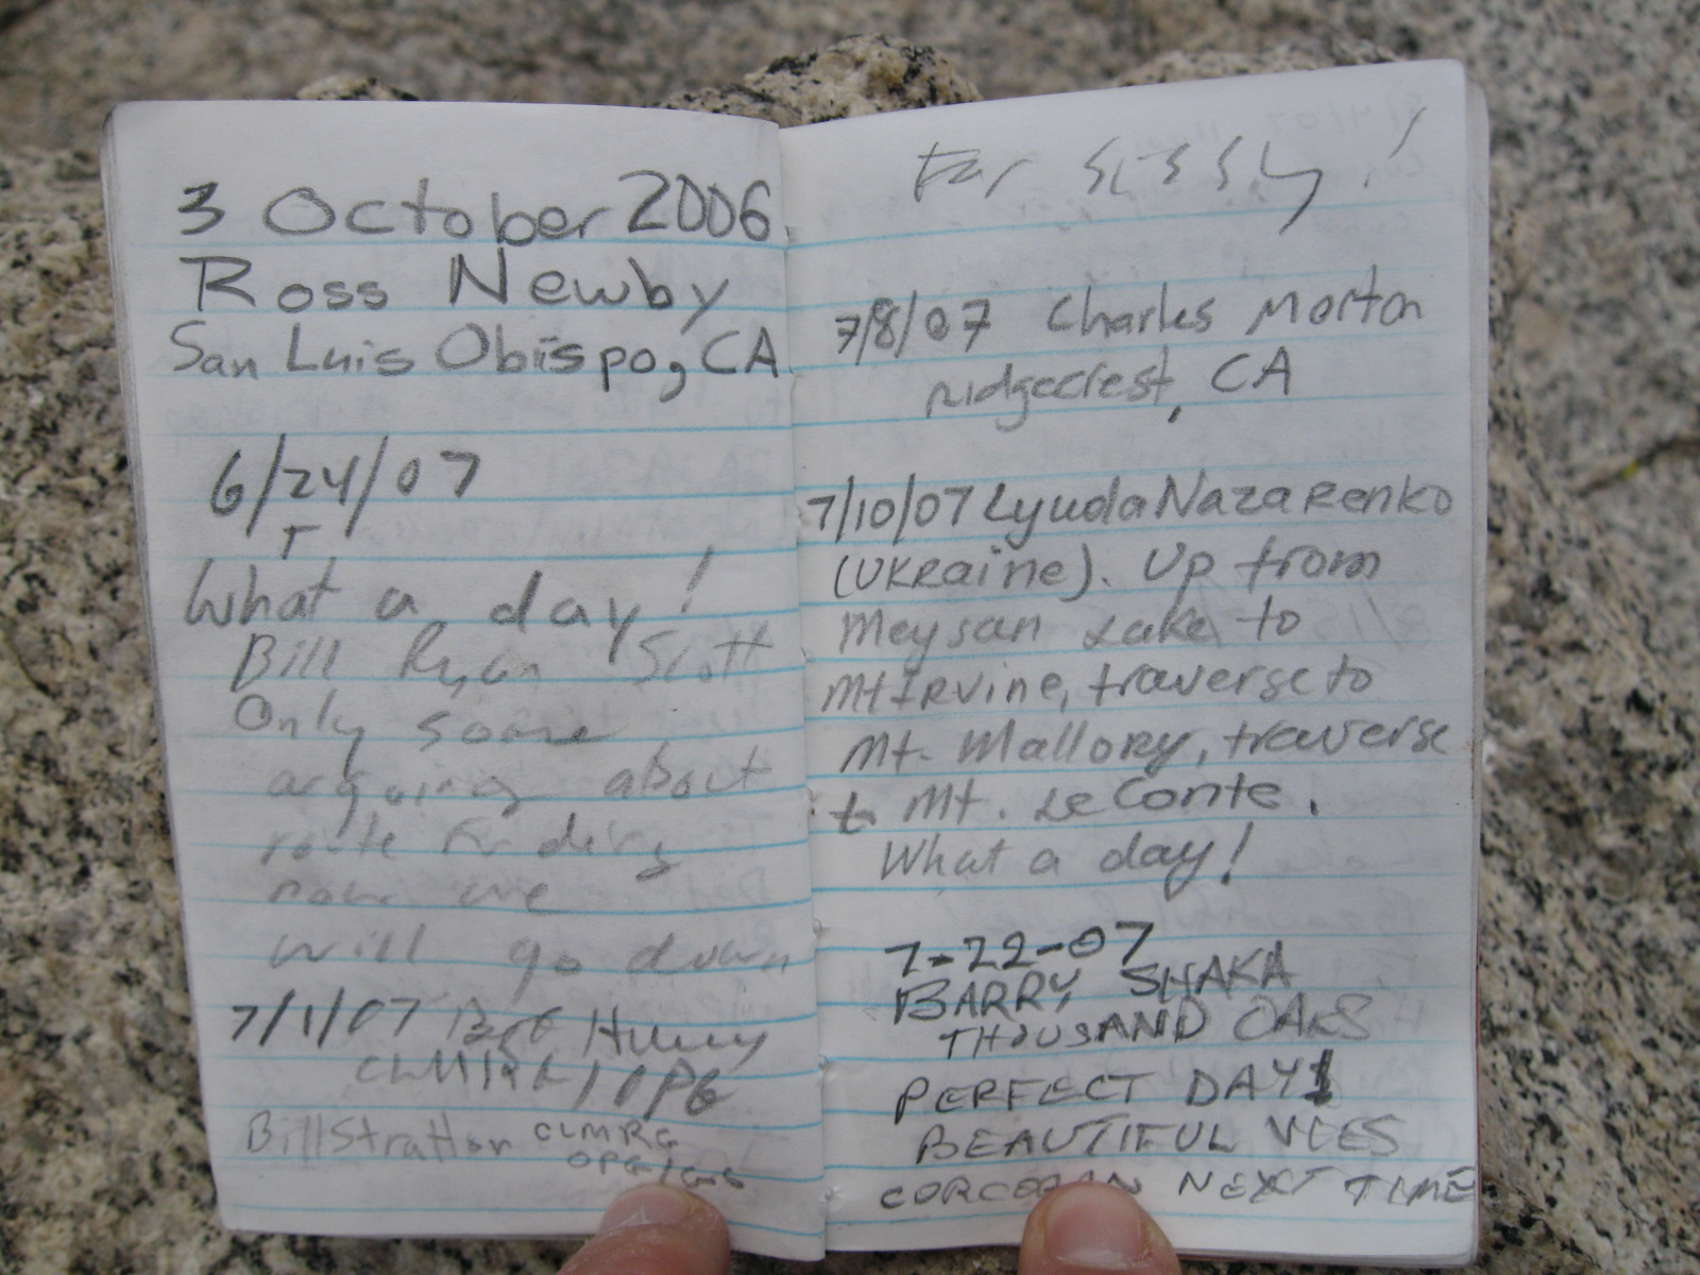 3 October 2006
Ross Newby
San Luis Obispo, CA
6/24/07
What a day!
Bill Ryan Scott
Only some
arguing about
route finding
now we
will go down
7/1/07
Bill Stratton CLMRG
For sissy!
7/8/07 Charles Morton
Ridgecrest, CA
7/10/07 Lyuda Nazarenko
(Ukraine). Up from
Meysan Lake to
Mt Irvine, traverse to
Mt. Mallory, traverse
to Mt. LeConte.
What a day!
7-22-07
BARRY SHAKA
THOUSAND OAKS
PERFECT DAY!
BEAUTIFUL VIES
CORCORAN NEXT TIME